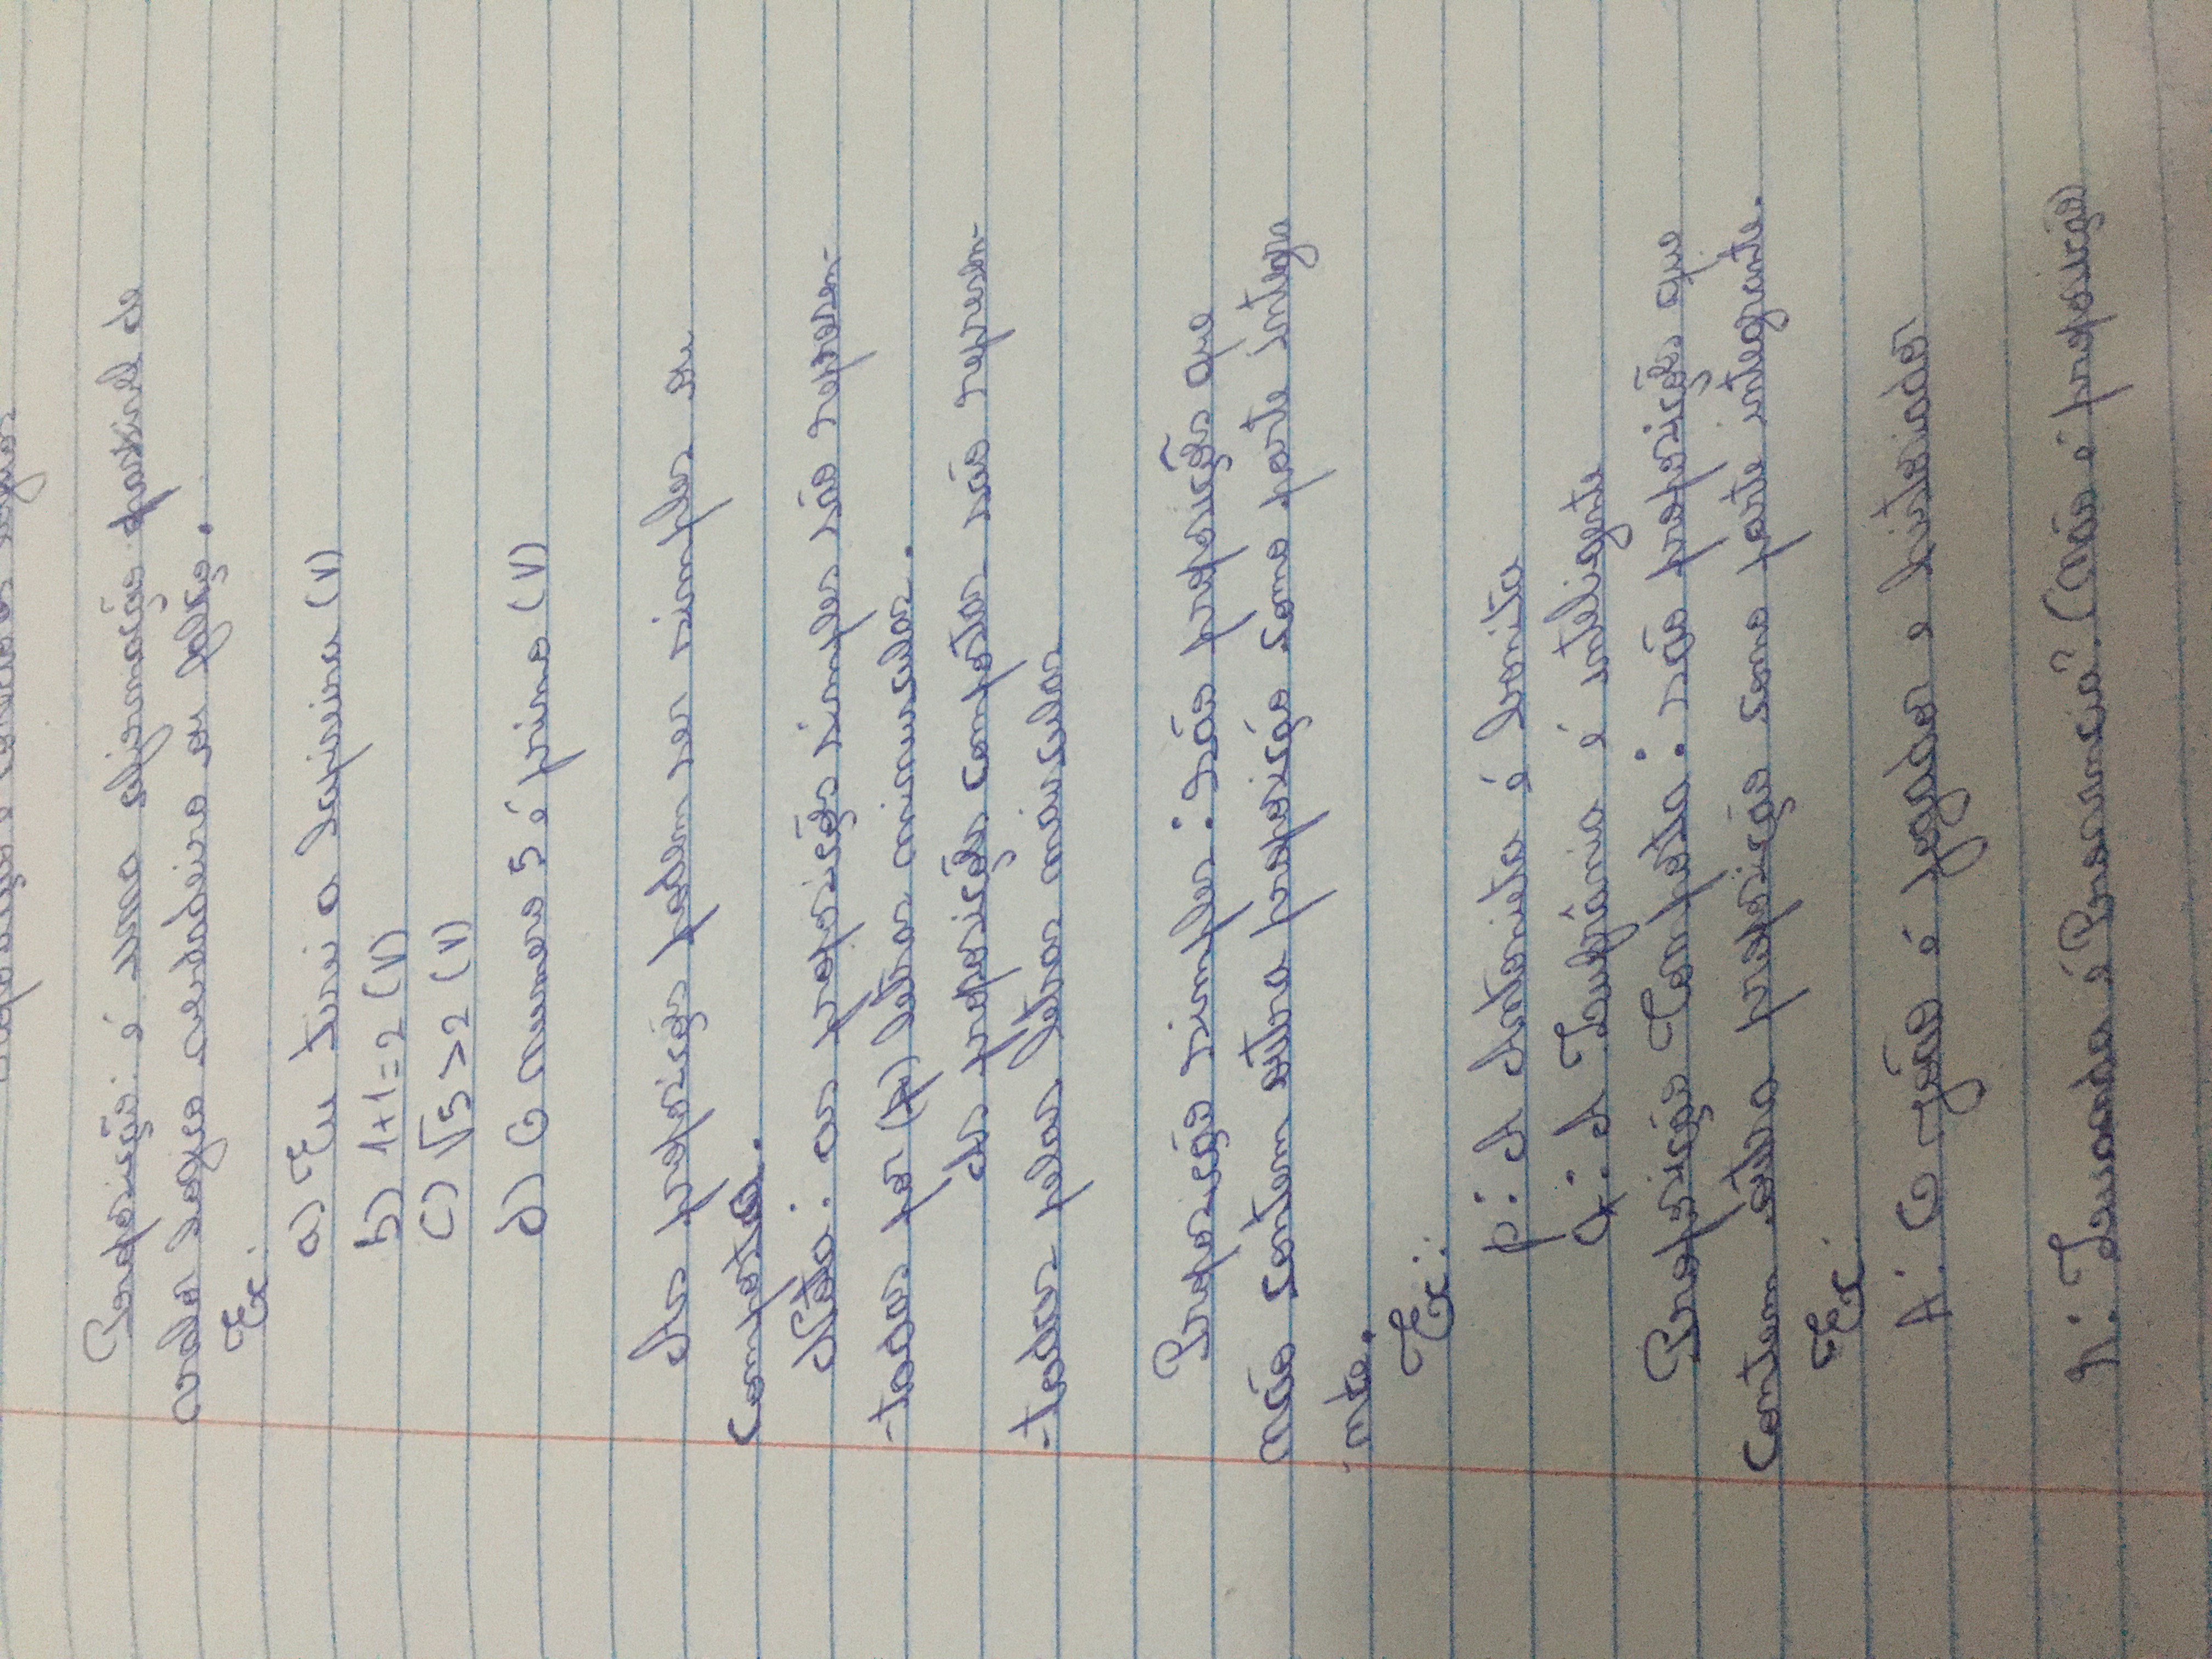 Proposição e conectivos lógicos
Proposição: é uma afirmação passivel de
valor logico verdadeiro ou falço.
Ex:
a) Eu tirei a lapiseira (V)
b) 1+1=2 (V)
c) √5>2 (V)
d) O numero 5 é primo (V)
As proposiçõs podem ser simples ou
composta.
Nota: as proposições simples são represen-
-tadas por (p) letras minusculas.
As proposições compostas são represen-
-tadas pelas letras maiusculas
Proposição simples: são proposições que
não contem outra proposição como parte integra
-nte.
Ex:
p: A Antonieta é bonita
q: A Eufrânia é inteligente
Proposição Composta: são proposições que
contem outra proposição como parte integrante.
Ex:
A: O João é jogador e historiador
n: Luanda é Provincia? (Não é proposição)